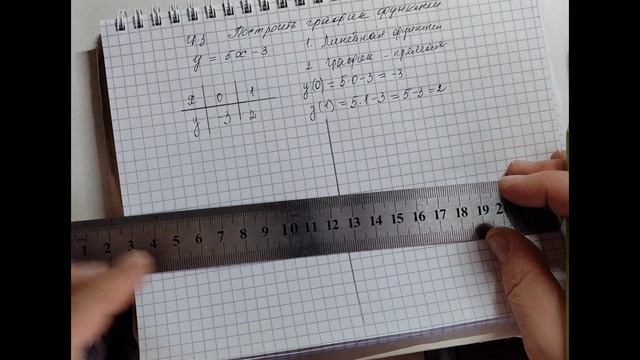 Ч.3 Построить график функции
y = 5x - 3
1. Линейная функция
2. График - прямая
x 0 1
y -3 2
y(0) = 5·0-3 = -3
y(1) = 5·1-3 = 5-3 = 2
1 2 3 4 5 6 7 8 9 10 11 12 13 14 15 16 17 18 19 2